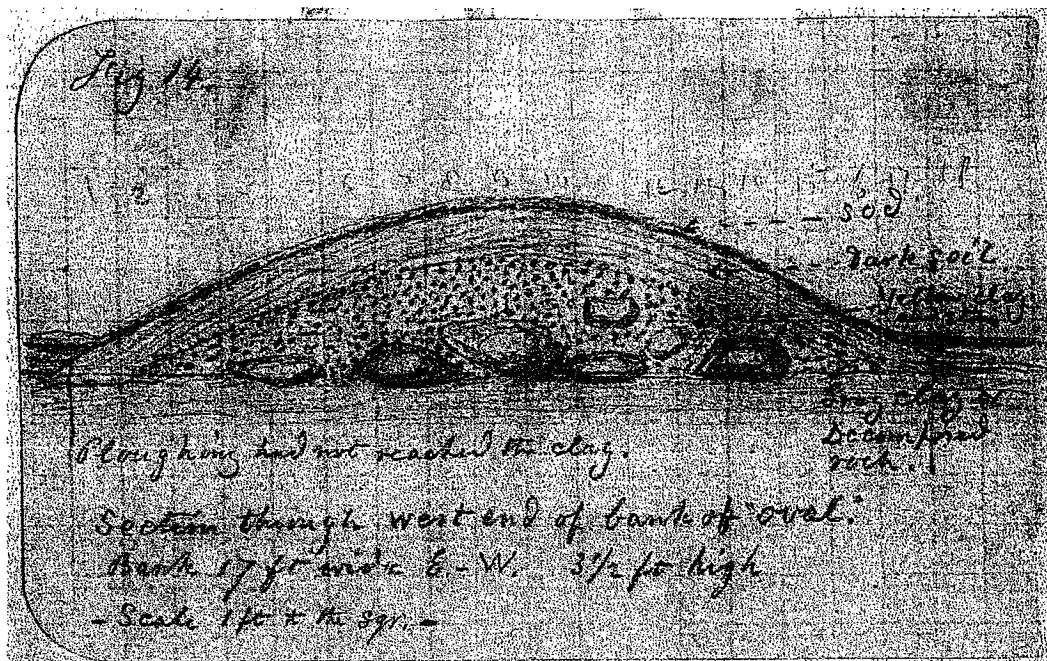 Fig 14.
1 2 6 7 8 9 10 12 13 14 15 16 17 18
Sod
Dark soil
Yellow clay
Gray clay or
Decomposed
rock.
Ploughing had not reached the clay.
Section through west end of bank of "oval."
Bank 17 ft wide E-W. 3½ ft high
- Scale 1 ft to the sqr. -